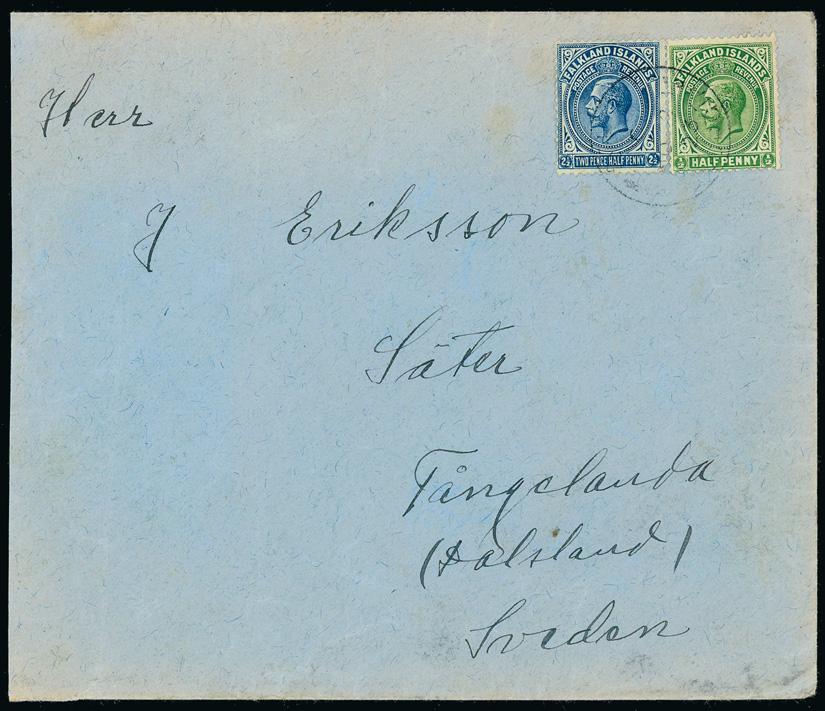 FALKLAND ISLANDS
POSTAGE REVENUE
2½ TWO PENCE HALF PENNY 2½
FALKLAND ISLANDS
POSTAGE REVENUE
½ HALF PENNY ½
Herr
J Eriksson
Säter
Tångelanda
(Dalsland)
Sveden